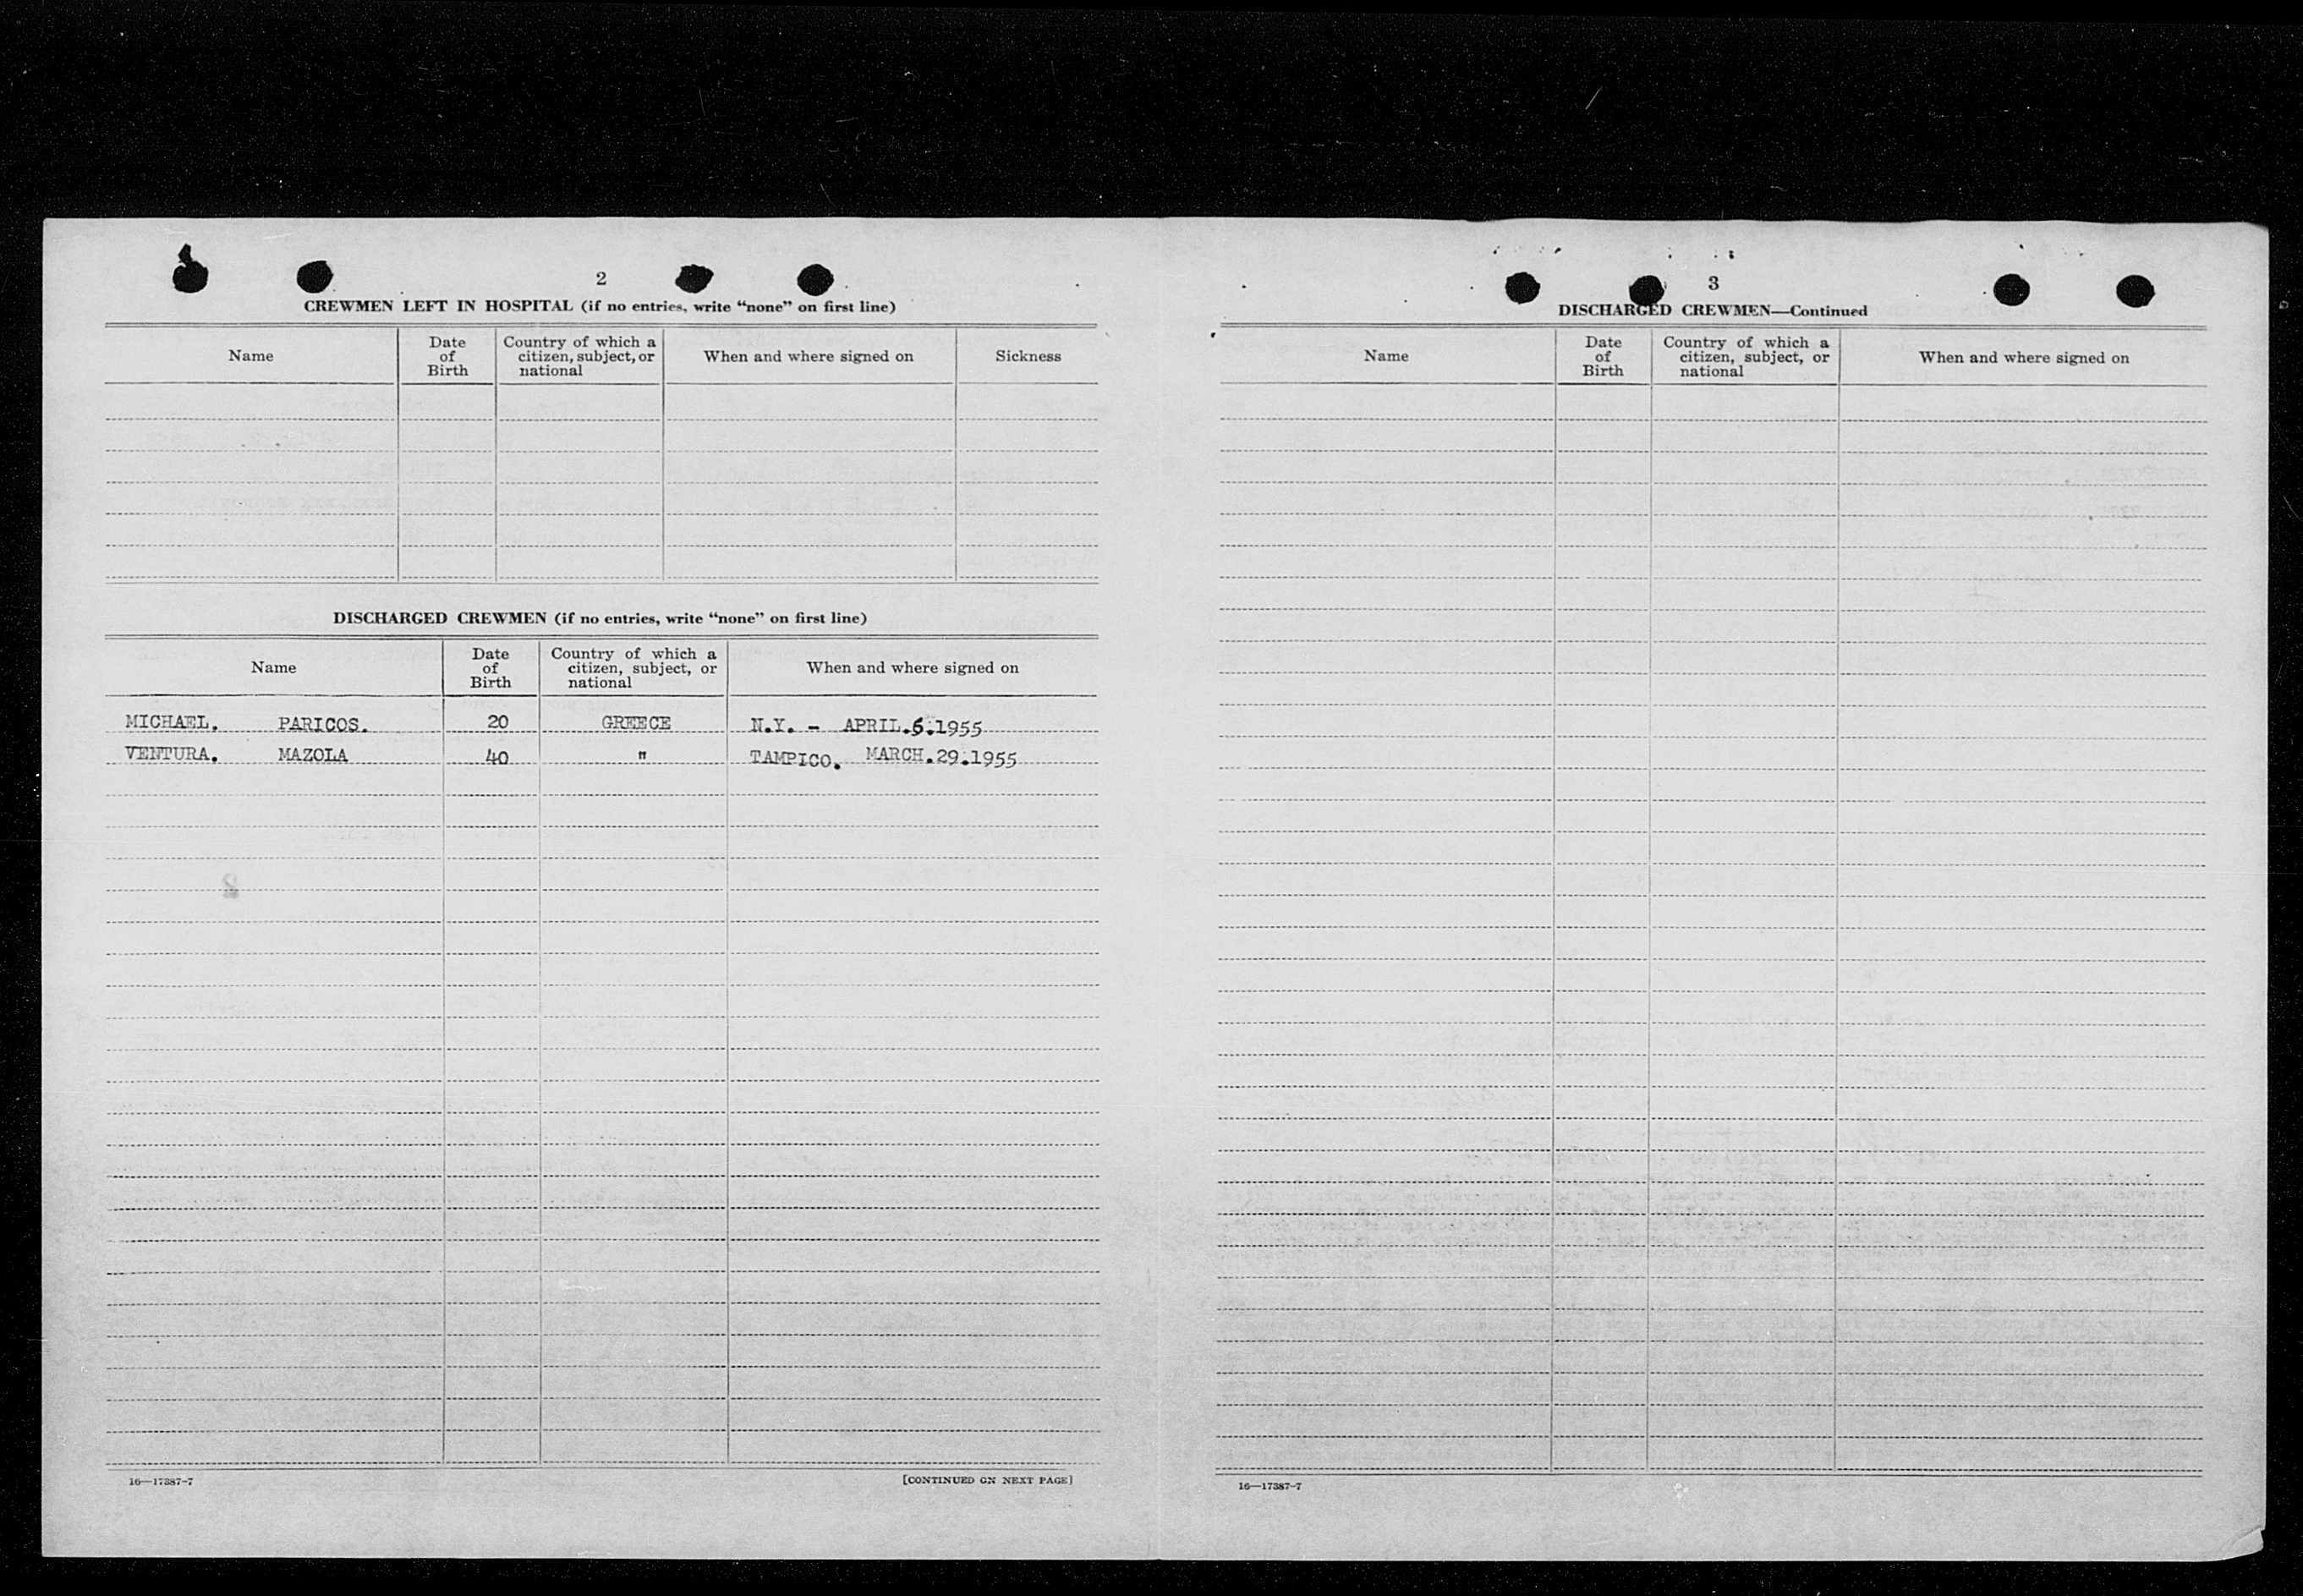 2
CREWMEN LEFT IN HOSPITAL (if no entries, write “none” on first line)
Name
Date of Birth
Country of which a citizen, subject, or national
When and where signed on
Sickness
DISCHARGED CREWMEN (if no entries, write “none” on first line)
Name
Date of Birth
Country of which a citizen, subject, or national
When and where signed on
MICHAEL. PARICOS. 20 GREECE N.Y. - APRIL.6.1955
VENTURA. MAZOLA 40 " TAMPICO. MARCH.29.1955
16—17387-7
[CONTINUED ON NEXT PAGE]
3
DISCHARGED CREWMEN—Continued
Name
Date of Birth
Country of which a citizen, subject, or national
When and where signed on
16—17387-7